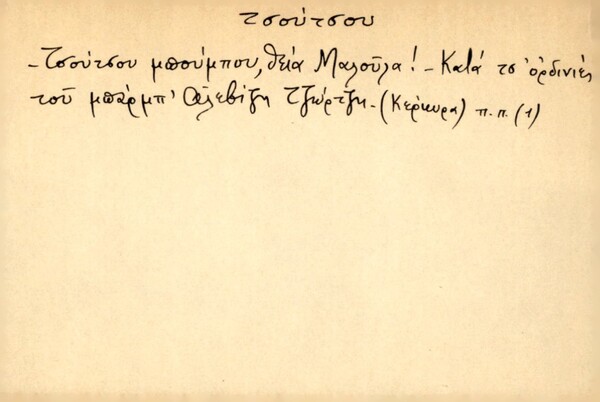 τσούτσου
-Τσούτσου μπούμπου, θειά Μαλούλα! - Κατά τσ' ὀρδινιές
τοῦ μπάρμπ' Ἀλεβίζη Τζώρτζη. - (Κέρκυρα) π.π. (1)